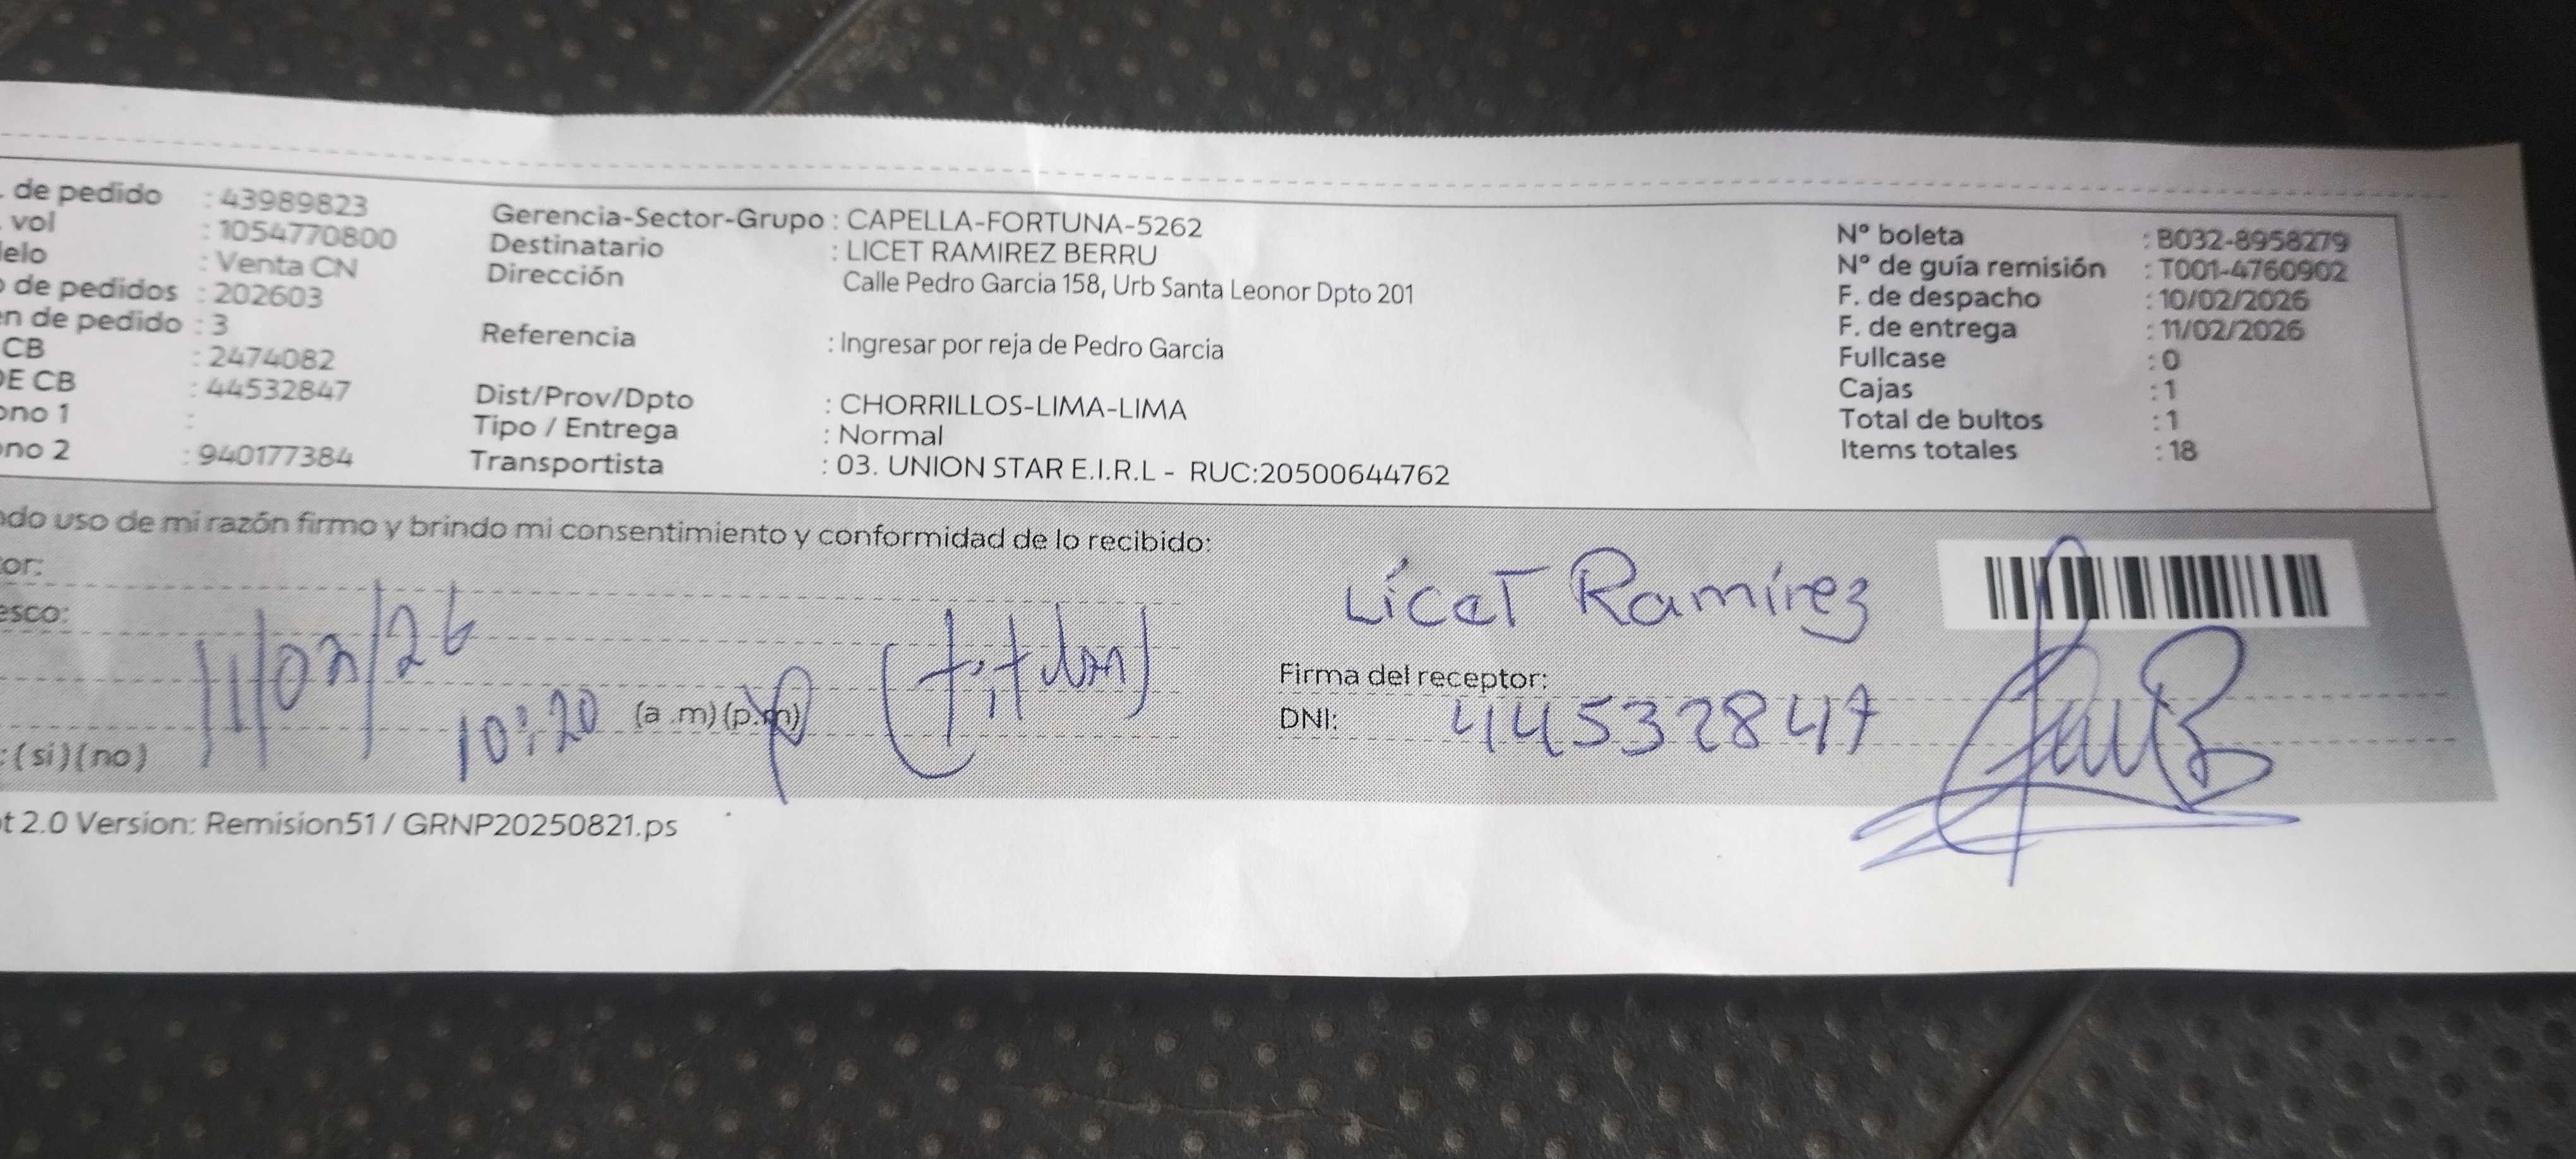 . de pedido : 43989823
. vol : 1054770800
elo : Venta CN
o de pedidos : 202603
en de pedido : 3
CB : 2474082
DE CB : 44532847
ono 1 :
ono 2 : 940177384
Gerencia-Sector-Grupo : CAPELLA-FORTUNA-5262
Destinatario : LICET RAMIREZ BERRU
Dirección Calle Pedro Garcia 158, Urb Santa Leonor Dpto 201
Referencia : Ingresar por reja de Pedro Garcia
Dist/Prov/Dpto : CHORRILLOS-LIMA-LIMA
Tipo / Entrega : Normal
Transportista : 03. UNION STAR E.I.R.L - RUC:20500644762
Nº boleta : B032-8958279
Nº de guía remisión : T001-4760902
F. de despacho : 10/02/2026
F. de entrega : 11/02/2026
Fullcase : 0
Cajas : 1
Total de bultos : 1
Items totales : 18
ndo uso de mi razón firmo y brindo mi consentimiento y conformidad de lo recibido:
tor:
esco:
11/02/26
10:20 (a .m) (p.m)
: (si) (no)
Licet Ramírez
Firma del receptor:
DNI: 44532847
t 2.0 Version: Remision51 / GRNP20250821.ps